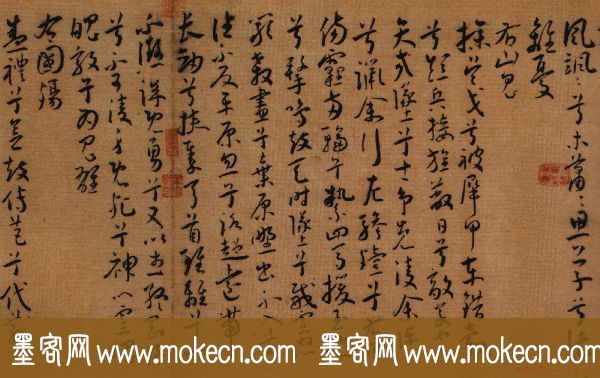 風颯〻兮木蕭〻思公子兮徒
離憂
右山鬼
操吳戈兮被犀甲車錯
兮短兵接旌蔽日兮敵若
矢交墜兮士爭先凌余陣
兮躐余行左驂殪兮右
傷霾兩輪兮縶四馬援玉
兮擊鳴鼓天時墜兮威靈
嚴殺盡兮棄原野出不入兮
往不反平原忽兮路超遠帶
長劍兮挾秦弓首雖離兮
不懲誠既勇兮又以武終剛
兮不可凌身既死兮神以靈
魄毅兮為鬼雄
右國殤
盛禮兮會鼓傳芭兮代
墨客网 www.mokecn.com 墨客网 www.mokecn.com